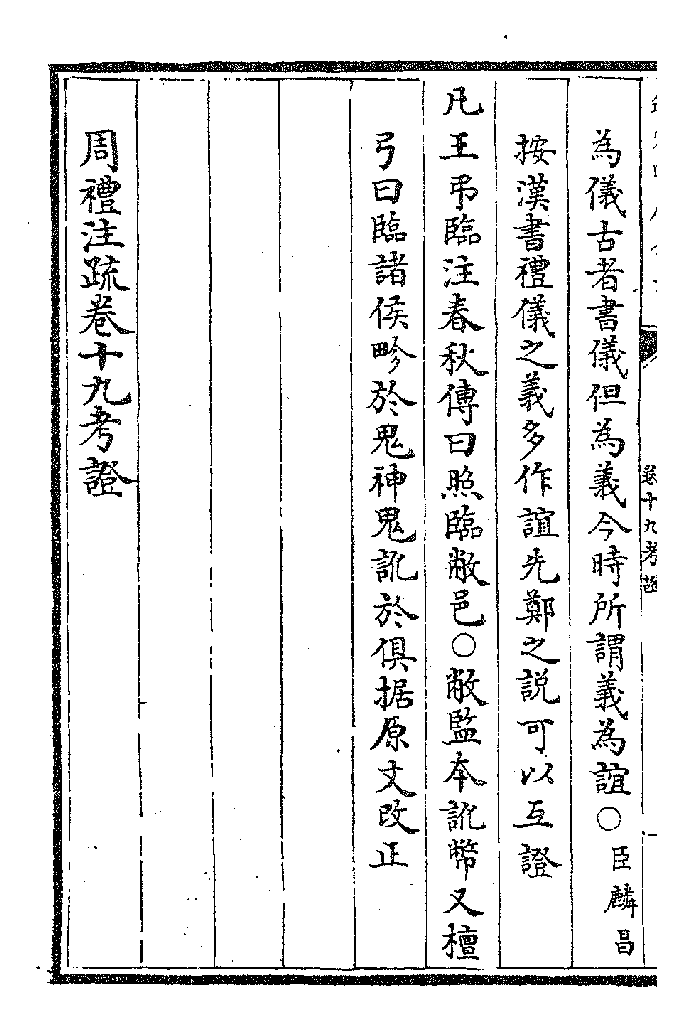 卷十九考證
為儀古者書儀但為義今時所謂義為誼○臣麟昌
按漢書禮儀之義多作誼先鄭之說可以互證
凡王弔臨注春秋傳曰照臨敝邑○敝監本訛幣又檀
弓曰臨諸侯畛於鬼神鬼訛於俱据原文改正
周禮注疏卷十九考證